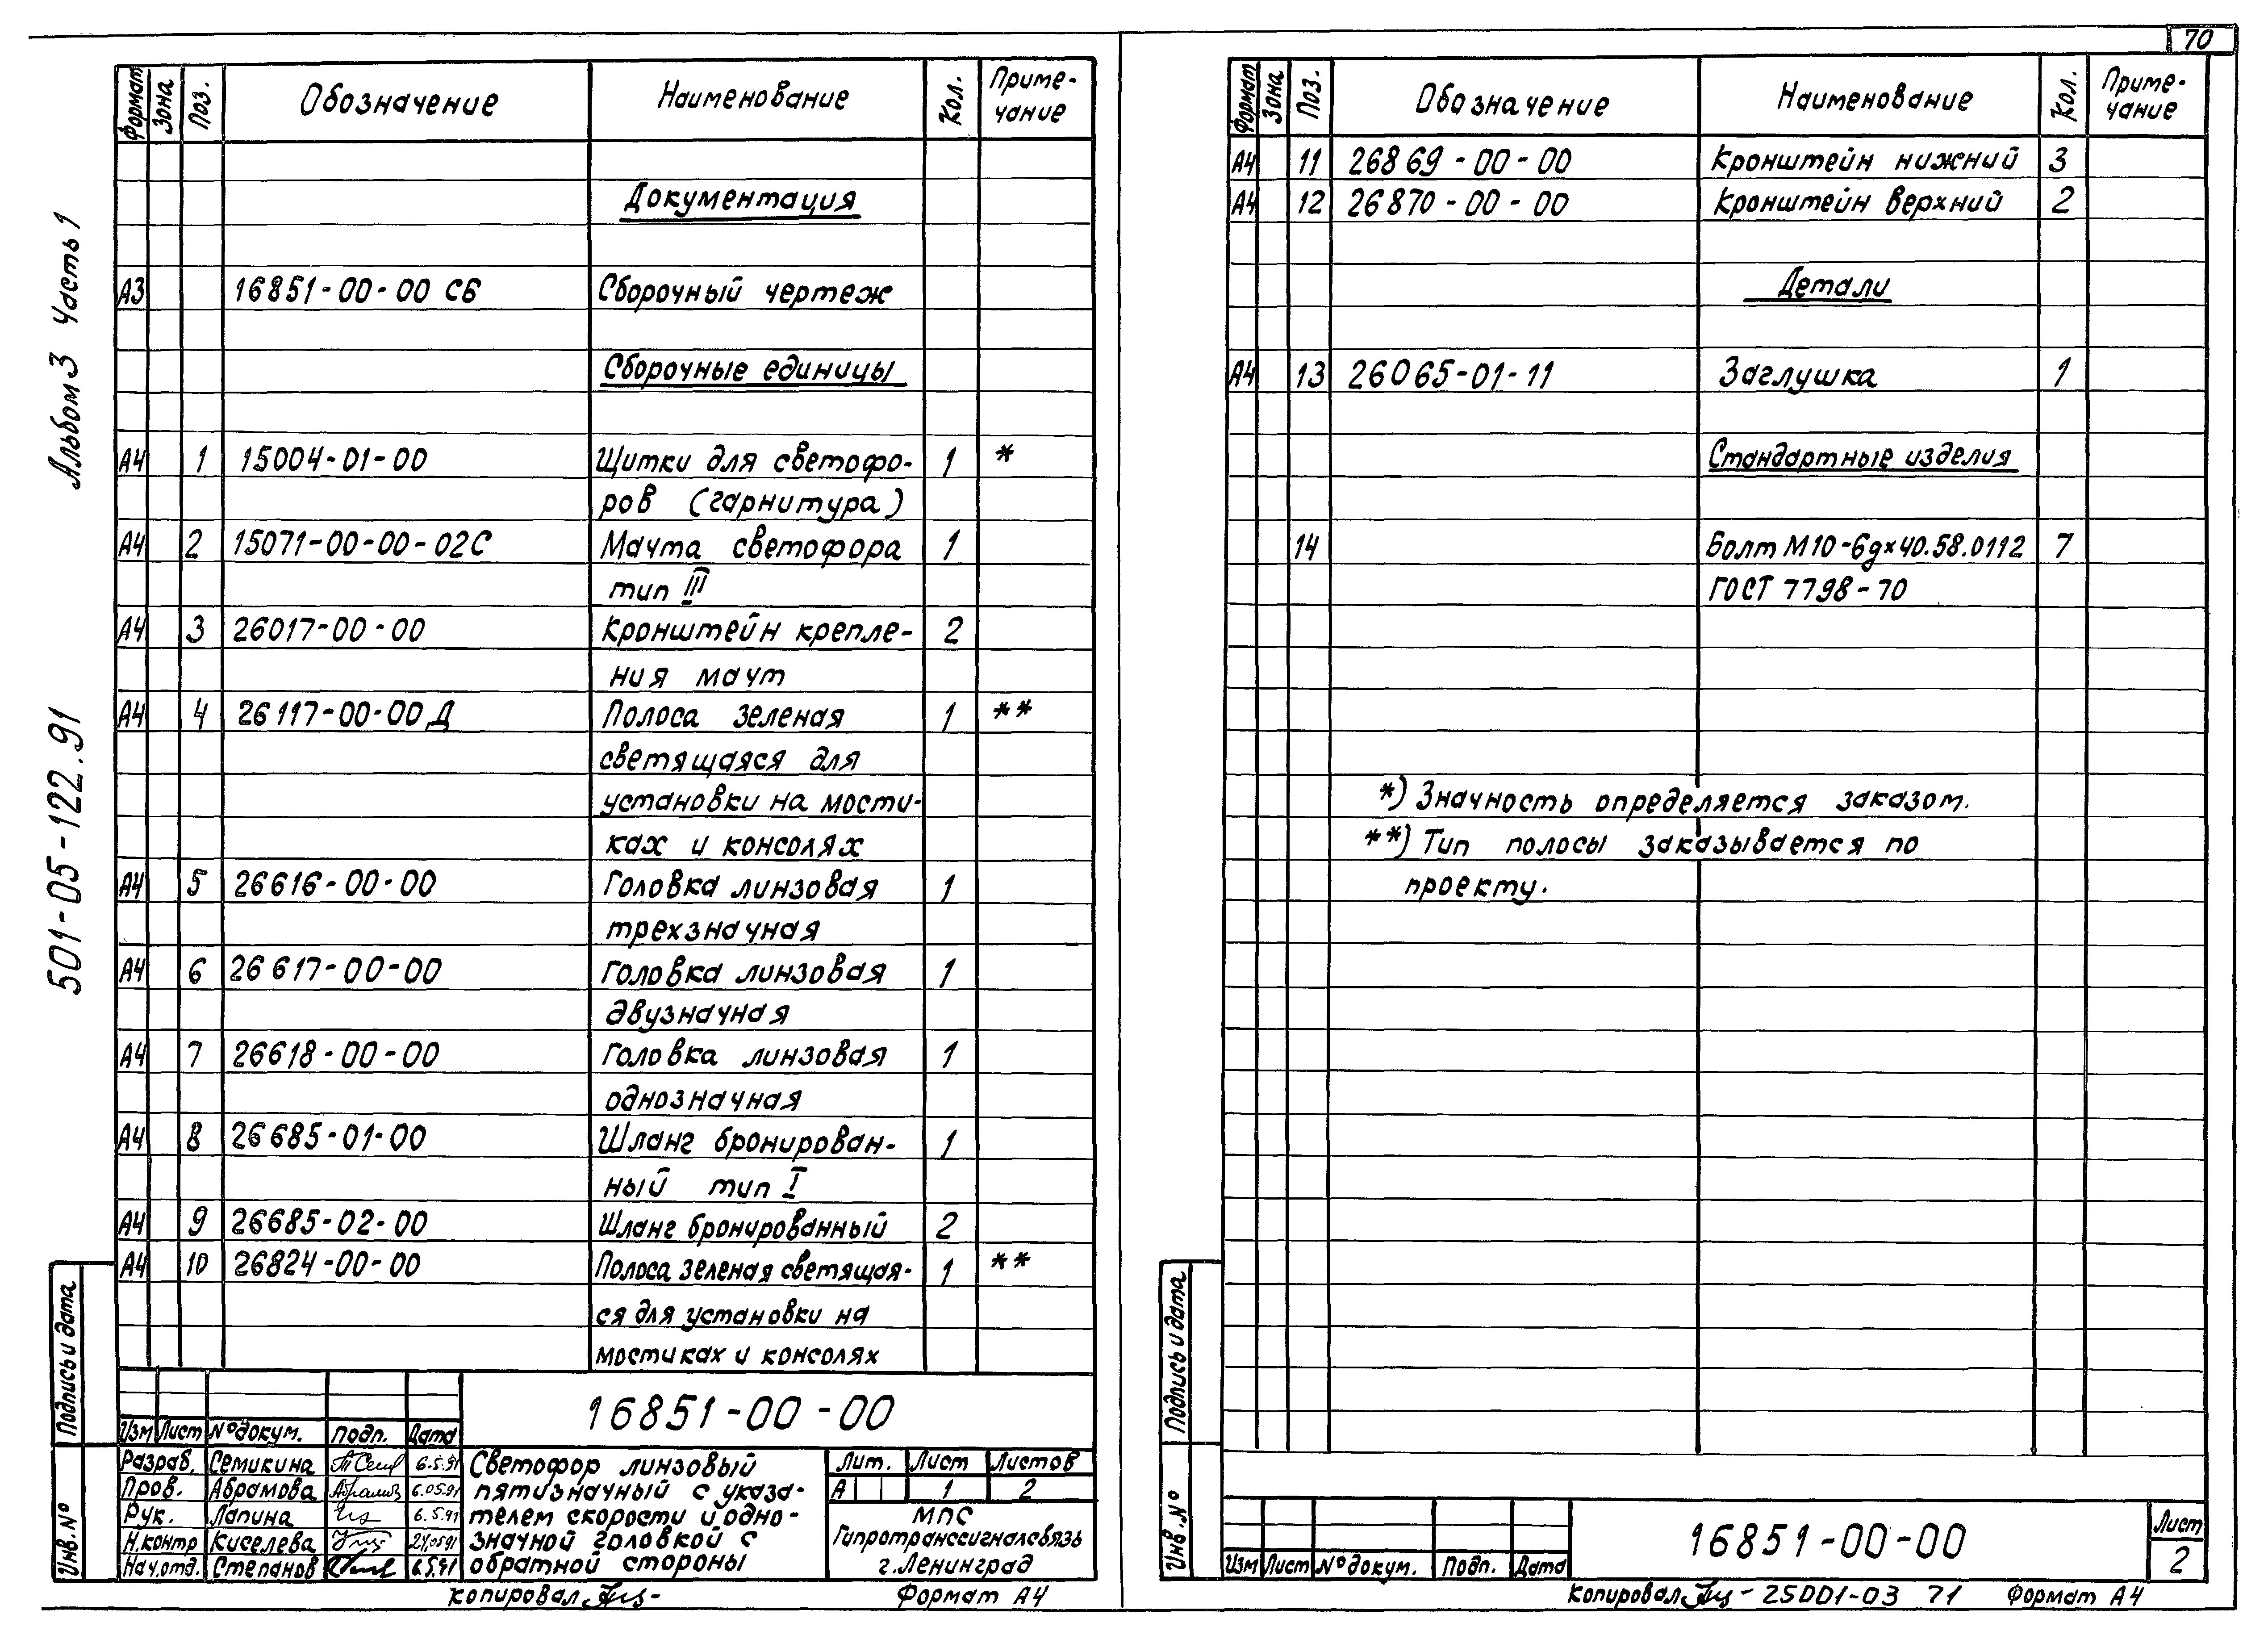 70
Альбом 3 Часть 1
501-05-122.91
Формат Зона Поз. Обозначение Наименование Кол. Приме-
чание
Документация
А3 16851-00-00 СБ Сборочный чертеж
Сборочные единицы
А4 1 15004-01-00 Щитки для светофо- 1 *
ров (гарнитура)
А4 2 15071-00-00-02С Мачта светофора 1
тип III
А4 3 26017-00-00 Кронштейн крепле- 2
ния мачт
А4 4 26117-00-00 Д Полоса зеленая 1 **
светящаяся для
установки на мости-
ках и консолях
А4 5 26616-00-00 Головка линзовая 1
трехзначная
А4 6 26617-00-00 Головка линзовая 1
двузначная
А4 7 26618-00-00 Головка линзовая 1
однозначная
А4 8 26685-01-00 Шланг бронирован- 1
ный тип I
А4 9 26685-02-00 Шланг бронированный 2
А4 10 26824-00-00 Полоса зеленая светящая- 1 **
ся для установки на
мостиках и консолях
Подпись и дата
Инв. №
16851-00-00
Изм Лист № докум. Подп. Дата
Разраб. Семикина 6.5.91
Пров. Абрамова 6.05.91
Рук. Лапина 6.5.91
Н.контр Киселева 24.05.91
Нач.отд. Степанов 6.5.91
Светофор линзовый
пятизначный с указа-
телем скорости и одно-
значной головкой с
обратной стороны
Лит. Лист Листов
А 1 2
МПС
Гипротранссигналсвязь
г. Ленинград
Копировал Формат А4
Формат Зона Поз. Обозначение Наименование Кол. Приме-
чание
А4 11 26869-00-00 Кронштейн нижний 3
А4 12 26870-00-00 Кронштейн верхний 2
Детали
А4 13 26065-01-11 Заглушка 1
Стандартные изделия
14 Болт М10-6gх40.58.0112 7
ГОСТ 7798-70
*) Значность определяется заказом.
**) Тип полосы заказывается по
проекту.
Подпись и дата
Инв. №
Изм Лист № докум. Подп. Дата
16851-00-00
Лист
2
Копировал - 25001-03 71 Формат А4